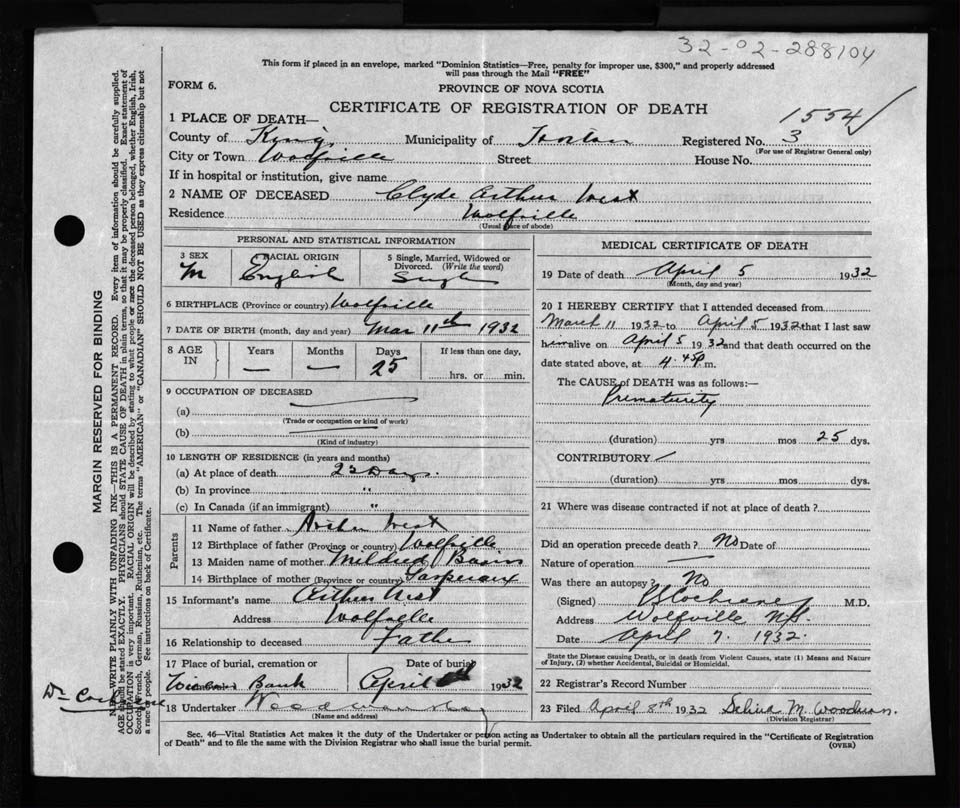 32-02-288104
This form if placed in an envelope, marked "Dominion Statistics—Free, penalty for improper use, $300," and properly addressed
will pass through the Mail "FREE"
FORM 6.
PROVINCE OF NOVA SCOTIA
CERTIFICATE OF REGISTRATION OF DEATH
1554
1 PLACE OF DEATH—
County of Kings Municipality of Registered No. 3
(For use of Registrar General only)
City or Town Wolfville Street House No.
If in hospital or institution, give name
2 NAME OF DECEASED Clyde Arthur West
Residence Wolfville
(Usual place of abode)
PERSONAL AND STATISTICAL INFORMATION
3 SEX M
RACIAL ORIGIN English
5 Single, Married, Widowed or Divorced. (Write the word) Single
6 BIRTHPLACE (Province or country) Wolfville
7 DATE OF BIRTH (month, day and year) Mar 11th 1932
8 AGE IN Years — Months — Days 25 If less than one day, hrs. or min.
9 OCCUPATION OF DECEASED
(a)
(Trade or occupation or kind of work)
(b)
(Kind of industry)
10 LENGTH OF RESIDENCE (in years and months)
(a) At place of death 25 Days
(b) In province "
(c) In Canada (if an immigrant) "
Parents
11 Name of father West
12 Birthplace of father (Province or country) Wolfville
13 Maiden name of mother Mildred
14 Birthplace of mother (Province or country) Gaspereaux
15 Informant's name Arthur West
Address Wolfville
16 Relationship to deceased Father
17 Place of burial, cremation or Bank
Date of burial April 1932
18 Undertaker
(Name and address)
MEDICAL CERTIFICATE OF DEATH
19 Date of death April 5 1932
(Month, day and year)
20 I HEREBY CERTIFY that I attended deceased from
March 11 1932 to April 5 1932 that I last saw
h alive on April 5 1932 and that death occurred on the
date stated above, at 4.45 p m.
The CAUSE of DEATH was as follows:—
Prematurity
(duration) yrs mos 25 dys.
CONTRIBUTORY
(duration) yrs mos dys.
21 Where was disease contracted if not at place of death?
Did an operation precede death? No Date of
Nature of operation —
Was there an autopsy? No
(Signed) Cochrane M.D.
Address Wolfville N.S.
Date April 7. 1932.
State the Disease causing Death, or in death from Violent Causes, state (1) Means and Nature
of Injury, (2) whether Accidental, Suicidal or Homicidal.
22 Registrar's Record Number
23 Filed April 8th 1932 M.
(Division Registrar)
Sec. 46—Vital Statistics Act makes it the duty of the Undertaker or person acting as Undertaker to obtain all the particulars required in the "Certificate of Registration
of Death" and to file the same with the Division Registrar who shall issue the burial permit.
(OVER)
MARGIN RESERVED FOR BINDING
WRITE PLAINLY WITH UNFADING INK—THIS IS A PERMANENT RECORD. Every item of information should be carefully supplied.
AGE should be stated EXACTLY. PHYSICIANS should STATE CAUSE OF DEATH in plain terms, so that it may be properly classified. Exact statement of
OCCUPATION is very important. RACIAL ORIGIN will be described by stating to what people or race the deceased person belonged, whether English, Irish,
Scotch, French, German, Russian, Ruthenian, etc. The terms "AMERICAN" or "CANADIAN" SHOULD NOT BE USED as they express citizenship but not
a race or people. See instructions on back of Certificate.